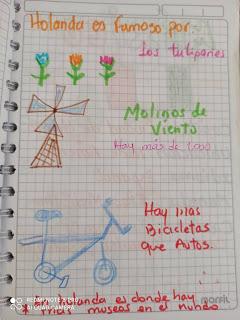 Holanda es Famoso por:
Los tulipanes
Molinos de
Viento
Hay más de 1.000
Hay mas
Bicicletas
que Autos.
Holanda es donde hay
mas museos en el mundo
REDMI NOTE 8 PRO
AI QUAD CAMERA